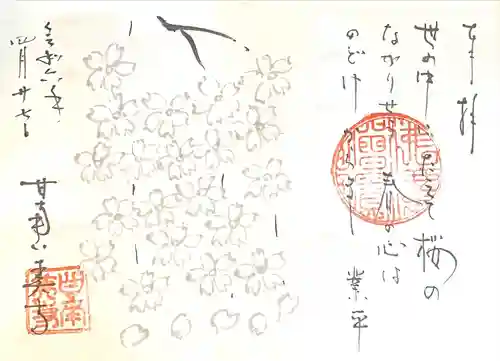 奉拝
世の中に たえて桜の
なかりせば 春の心は
のどけからまし 業平
令和六年
四月廿七日
甘南美寺